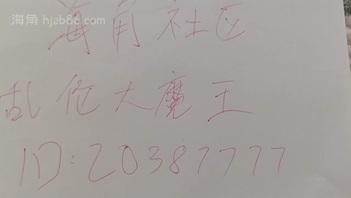 海角 hjab8c.com
海角社区
乱伦大魔王
ID:20387777